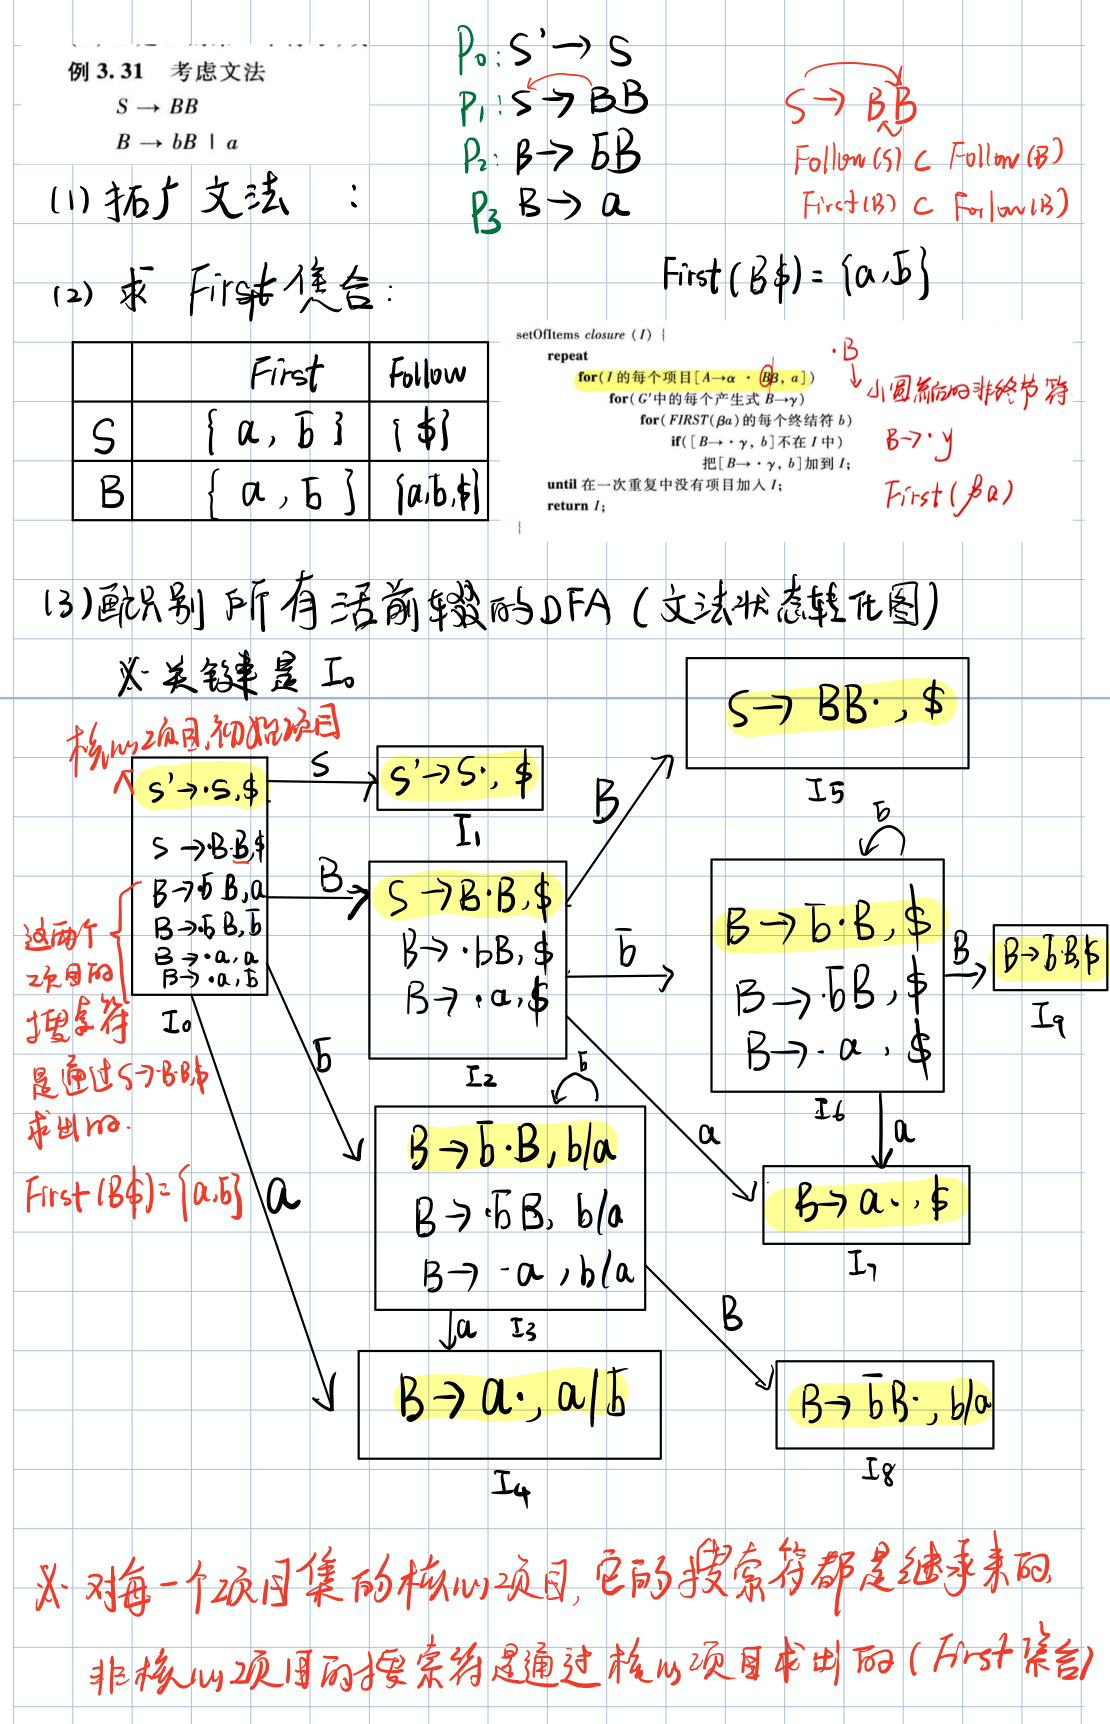 例 3.31 考虑文法
S → BB
B → bB | a
P₀: S' → S
P₁: S → BB
P₂: B → bB
P₃ B → a
S → BB
Follow(S) ⊂ Follow(B)
First(B) ⊂ Follow(B)
(1) 拓广文法 :
(2) 求 First 集合:
First(B$) = {a,b}
First Follow
S {a, b} {$}
B {a, b} {a,b,$}
setOfItems closure (I) {
repeat
for(I 的每个项目[A→α · Bβ, a])
for(G'中的每个产生式 B→γ)
for(FIRST(βa)的每个终结符 b)
if([B→ · γ, b]不在 I 中)
把[B→ · γ, b]加到 I;
until 在一次重复中没有项目加入 I;
return I;
}
·B
小圆点后的非终节符
B→·γ
First(βa)
(3) 画识别所有活前缀的DFA (文法状态转化图)
※ 关键是 I₀
核心项目,初始项目
S'→·S,$
S→·BB,$
B→·bB,a
B→·bB,b
B→·a,a
B→·a,b
I₀
这两个
项目的
搜索符
是通过S→·BB,$
求出的.
First(B$)={a,b}
S
S'→S·,$
I₁
B
S→B·B,$
B→·bB,$
B→·a,$
I₂
B
S→BB·,$
I5
b
b
B→b·B,$
B→·bB,$
B→·a,$
I6
B
B→bB·,$
I9
a
a
B→a·,$
I7
b
b
B→b·B,b/a
B→·bB,b/a
B→·a,b/a
I3
a
a
B→a·,a/b
I4
B
B→bB·,b/a
I8
※ 对每一个项目集的核心项目,它的搜索符都是继承来的
非核心项目的搜索符是通过核心项目求出的(First集合)